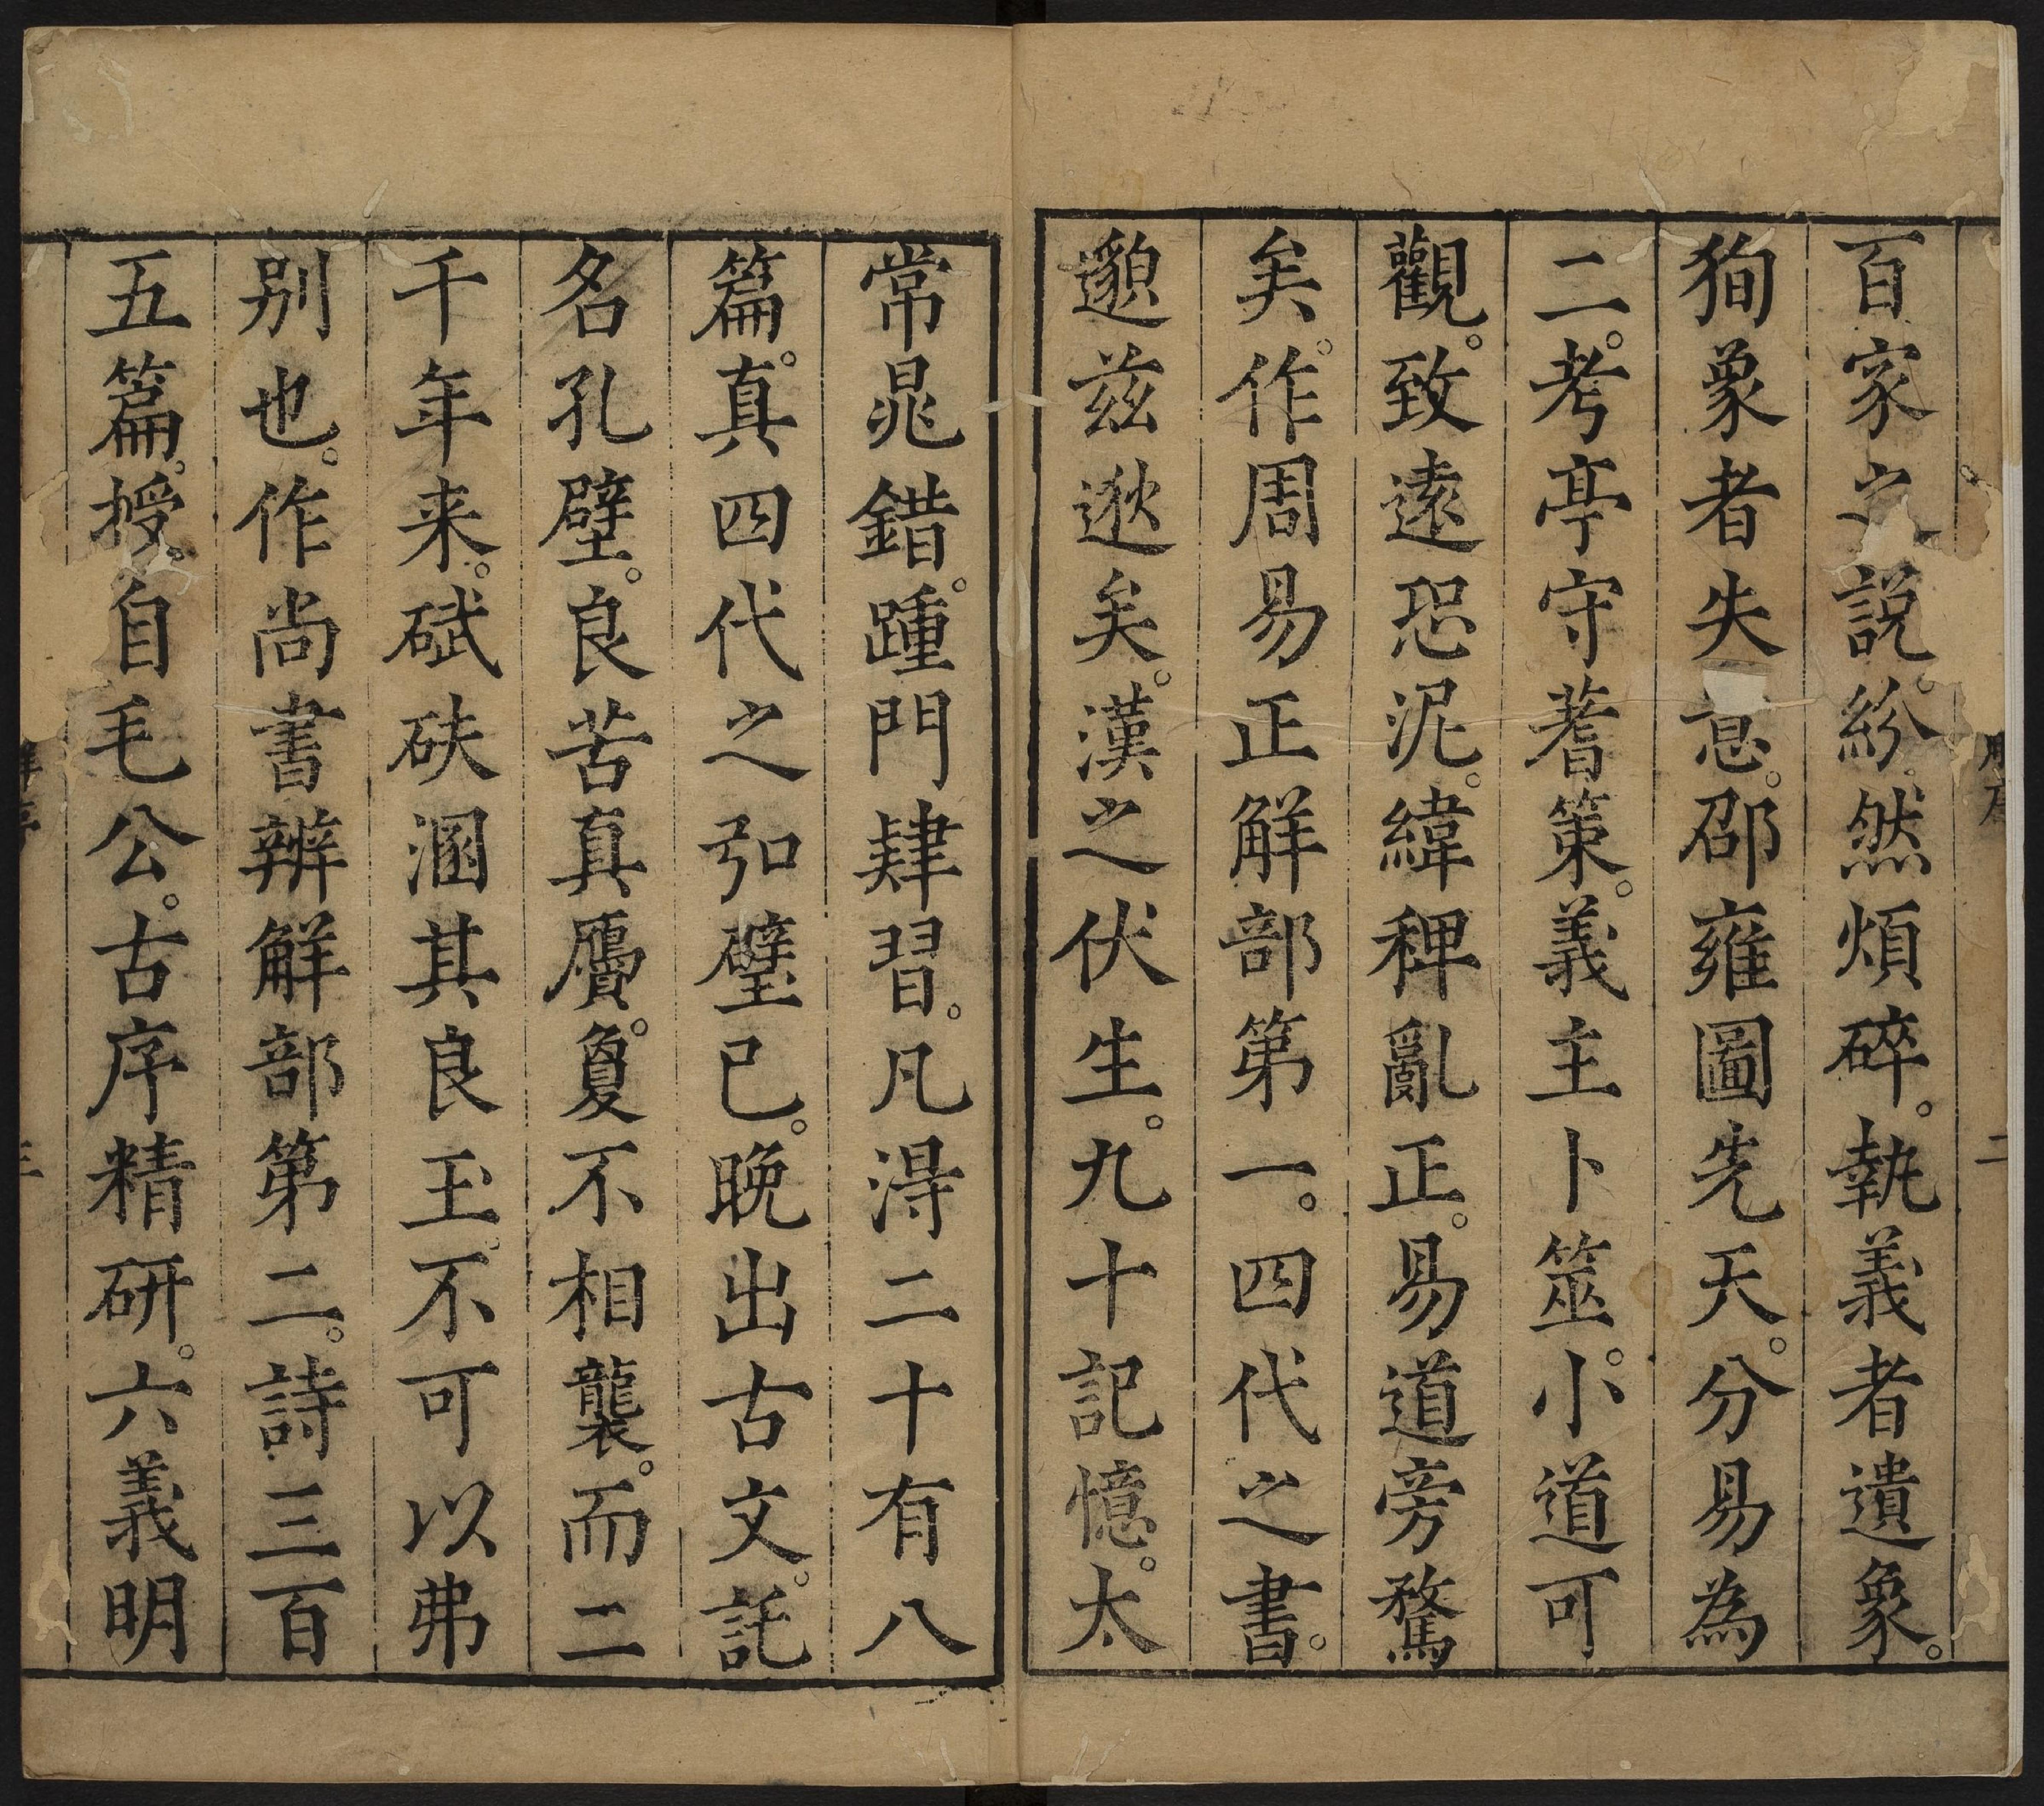 百家之說。紛。然煩碎。執義者遺象。
狥象者失意。邵雍圖先天。分易為
二。考亭守蓍策。義主卜筮。小道可
觀。致遠恐泥。緯稗亂正。易道旁騖
矣。作周易正解部第一。四代之書。
邈兹逖矣。漢之伏生。九十記憶。太
常晁錯。踵門肄習。凡淂二十有八
篇。真四代之弘璧已。晚出古文。託
名孔壁。良苦真贗。敻不相襲。而二
千年来。碔砆溷其良玉。不可以弗
别也。作尚書辨解部第二。詩三百
五篇。授。自毛公。古序精研。六義明